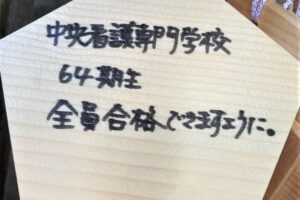 中央看護専門学校
64期生
全員合格できますように。